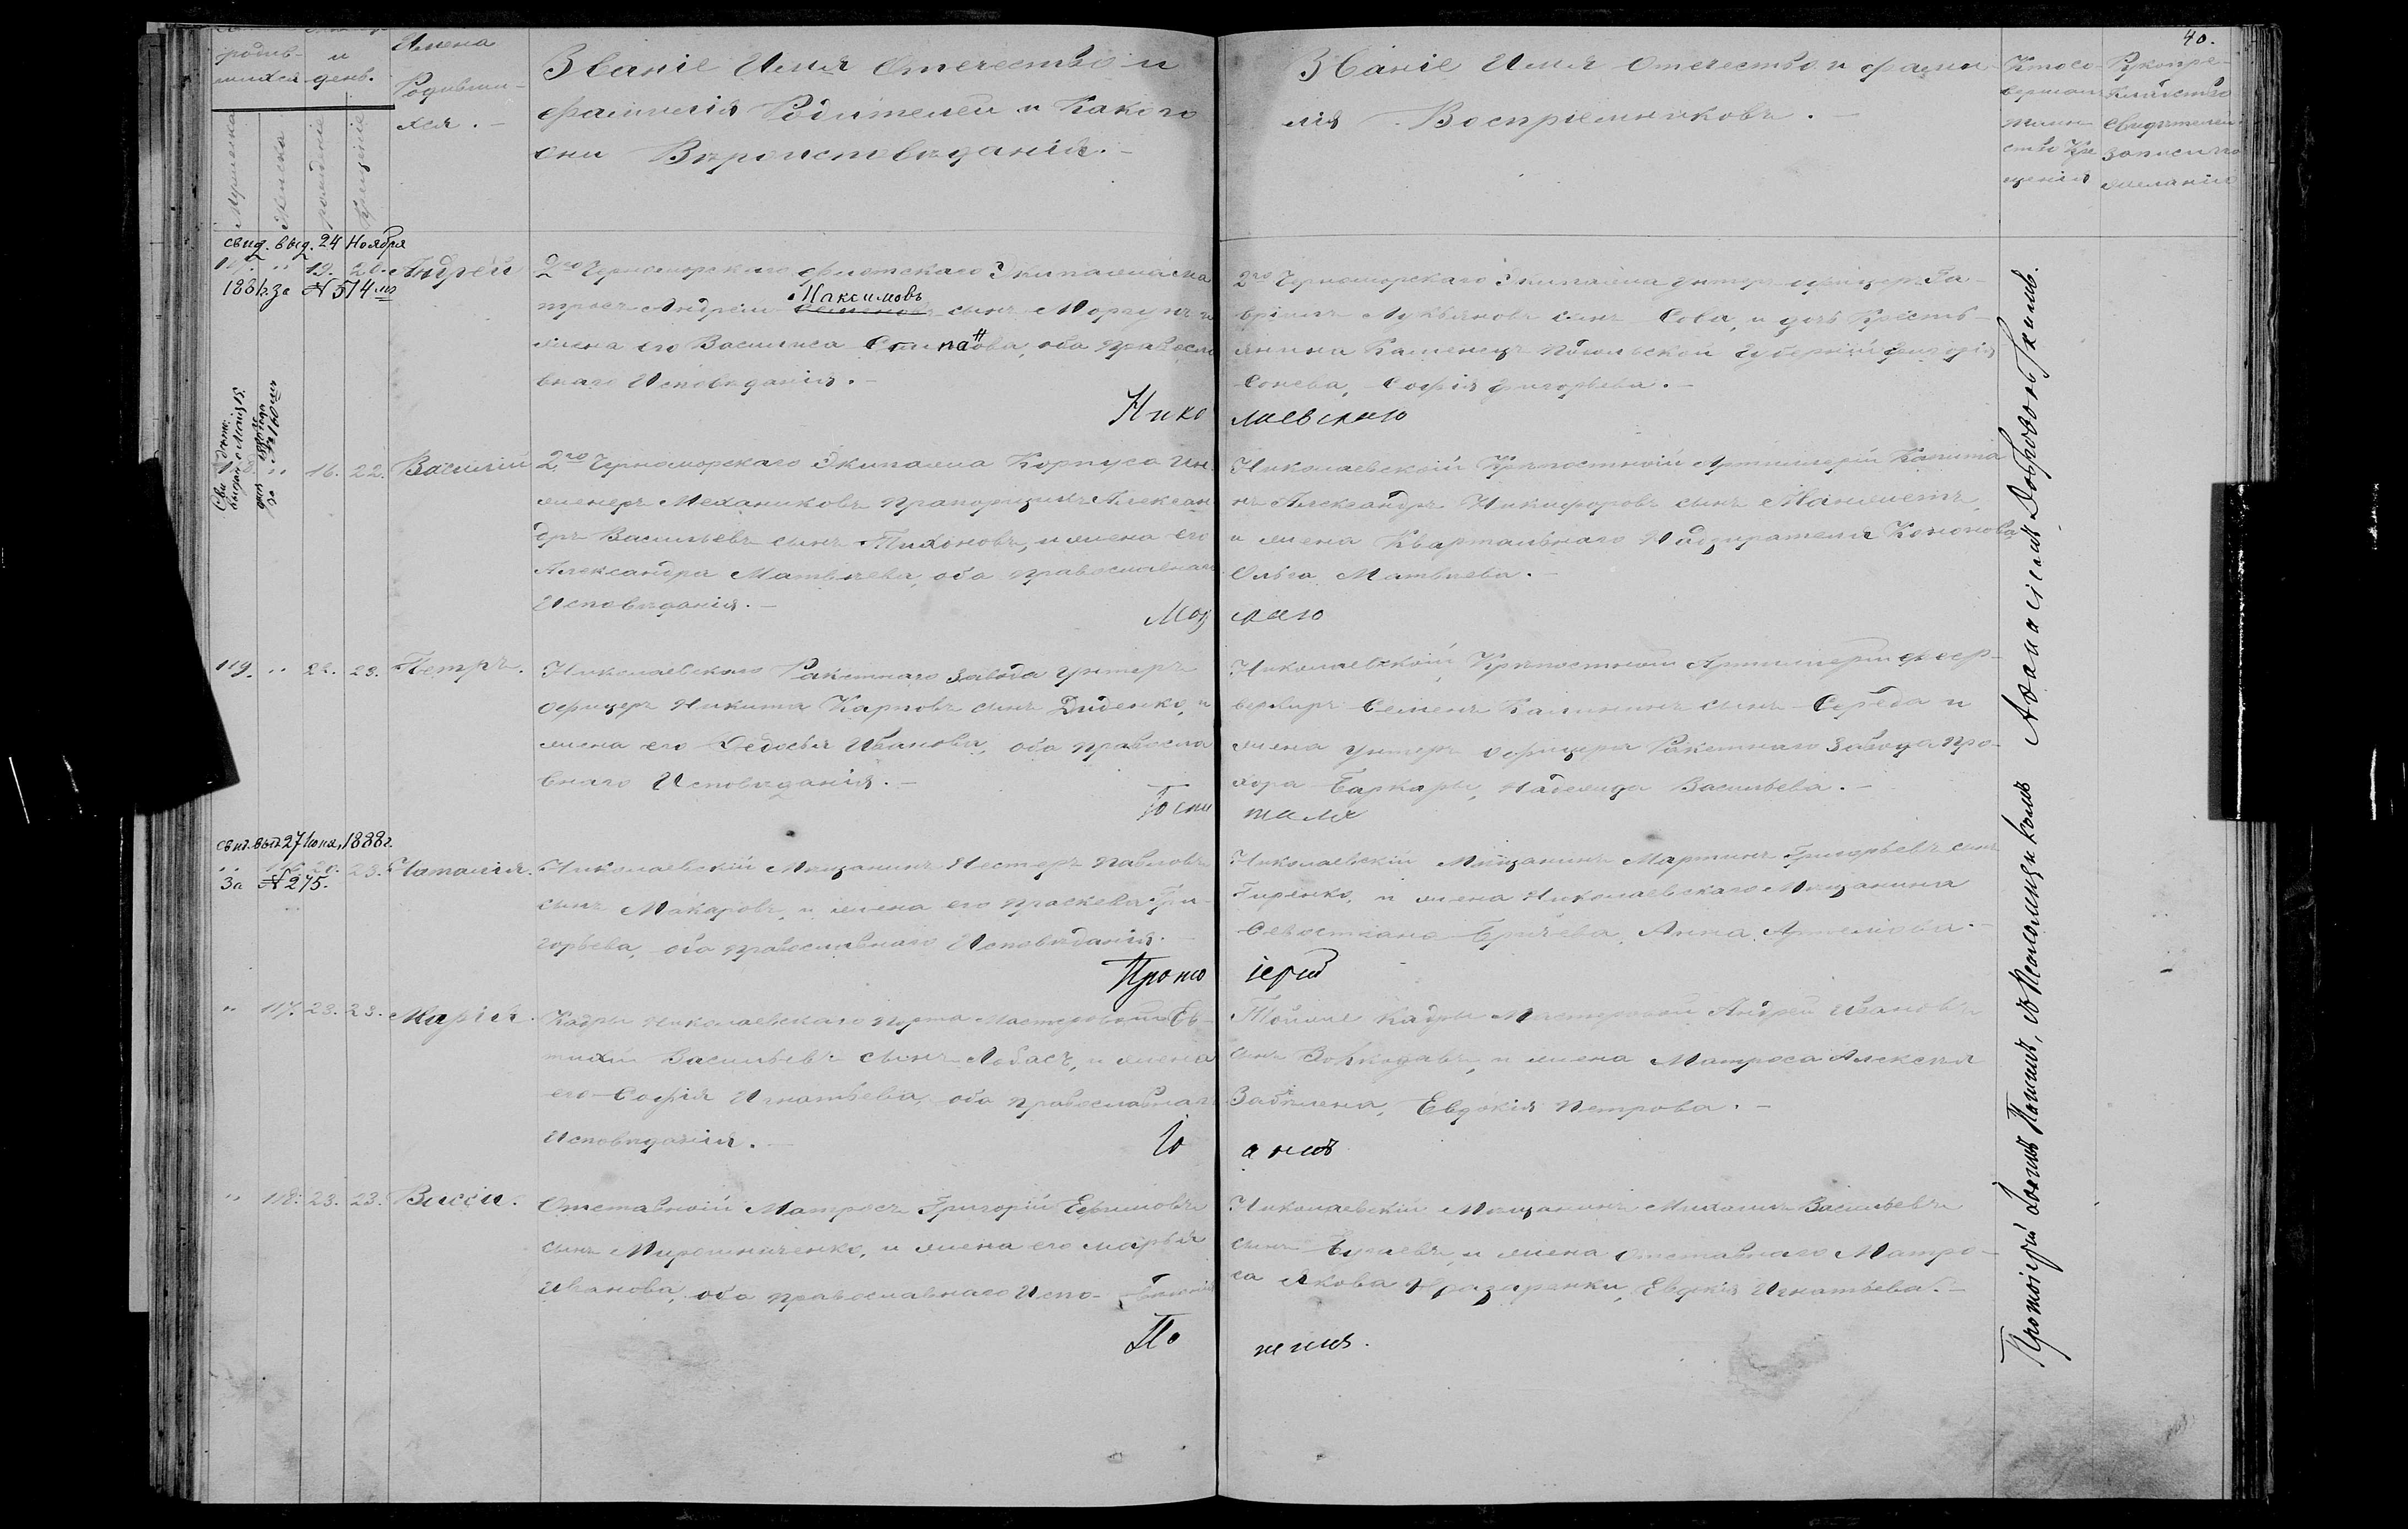 40.
родив-
шихся
и
день.
Имена
Родивши-
хся.
Мужеска
Женска
рожденiе
Крещенiе
Званiе Имя Отечество и
фамилiя Родителей и Какого
они Вѣроисповѣданiя.
Званiе Имя Отечество и фами-
лiя Воспрiемниковъ.
Кто со-
вершалъ
таин-
ство Кре
щенiя
Рукопри-
кладство
свидѣтелей
записи по
желанiю
свид. выд. 24 Ноября
117. " 19. 20. Андрей
188 г. за № 574 мъ
2го Черноморскаго флотскаго Экипажа ма
Максимовъ
тросъ Андрей сынъ Моргунъ и
жена его Василиса ова, оба Правосла
внаго Исповѣданiя.
2го Черноморскаго Экипажа унтеръ офицеръ Га-
врiилъ Лукьяновъ сынъ Сова, и дочь Кресть-
янина Каменецъ Подольской Губернiи Григорiя
Сонева, Софiя Григорьева.
Нико лаевскаго
за № 160 мъ
" 16. 22. Василiй
2го Черноморскаго Экипажа Корпуса Ин
женеръ Механиковъ Прапорщикъ Алексан
дръ Васильевъ сынъ Тихоновъ, и жена его
Александра Матвѣева, оба православнаго
Исповѣданiя.
Николаевской Крѣпостной Артиллерiи Капита
нъ Александръ Никифоровъ сынъ
и жена Квартальнаго Надзирателя Кононова,
Ольга Матвѣева.
Мор скаго
119. " 22. 23. Петръ.
Николаевскаго Ракетнаго Завода Унтеръ
офицеръ Никита Карповъ сынъ Диденко, и
жена его Ѳедосья Иванова, оба правосла
внаго Исповѣданiя.
Николаевской Крѣпостной Артиллерiи феер-
веркеръ Семенъ Калининъ сынъ Середа и
жена унтеръ офицера Ракетнаго Завода Про-
хора Баркары, Надежда Васильева.
Госпи таля
свид. выд. 27 Iюня, 1888 г.
" 116. 20. 23. Наталiя.
За № 275.
Николаевскiй Мѣщанинъ Нестеръ Павловъ
сынъ Макаровъ, и жена его Праскева Гри-
горьева, оба православнаго Исповѣданiя.
Николаевскiй Мѣщанинъ Мартинъ Григорьевъ сынъ
Гиренко, и жена Николаевскаго Мѣщанина
Севостiана Бричева, Анна Артемова.
Прото iерей
" 117. 23. 23. Марiя.
Кадры Николаевскаго Порта Мастеровой Ев-
тихiй Васильевъ сынъ Лобасъ, и жена
его Софiя Игнатьева, оба православнаго
Исповѣданiя.
Тойже Кадры Мастеровой Андрей Ивановъ
сынъ Волкодавъ, и жена Матроса Алексѣя
Забѣлена, Евдокiя Петрова.
Iо аннъ
" 118. 23. 23. Васса.
Отставной Матросъ Григорiй Ефимовъ
сынъ Мирошниченко, и жена его Марья
Иванова, оба православнаго Испо-
Николаевскiй Мѣщанинъ Михаилъ Васильевъ
сынъ Бугаевъ, и жена отставнаго Матро-
са Якова Евдокiя Игнатьева.
По пелъ.
Протоiерей Iоаннъ съ Псаломщикомъ Аѳанасiемъ Добровольскимъ.